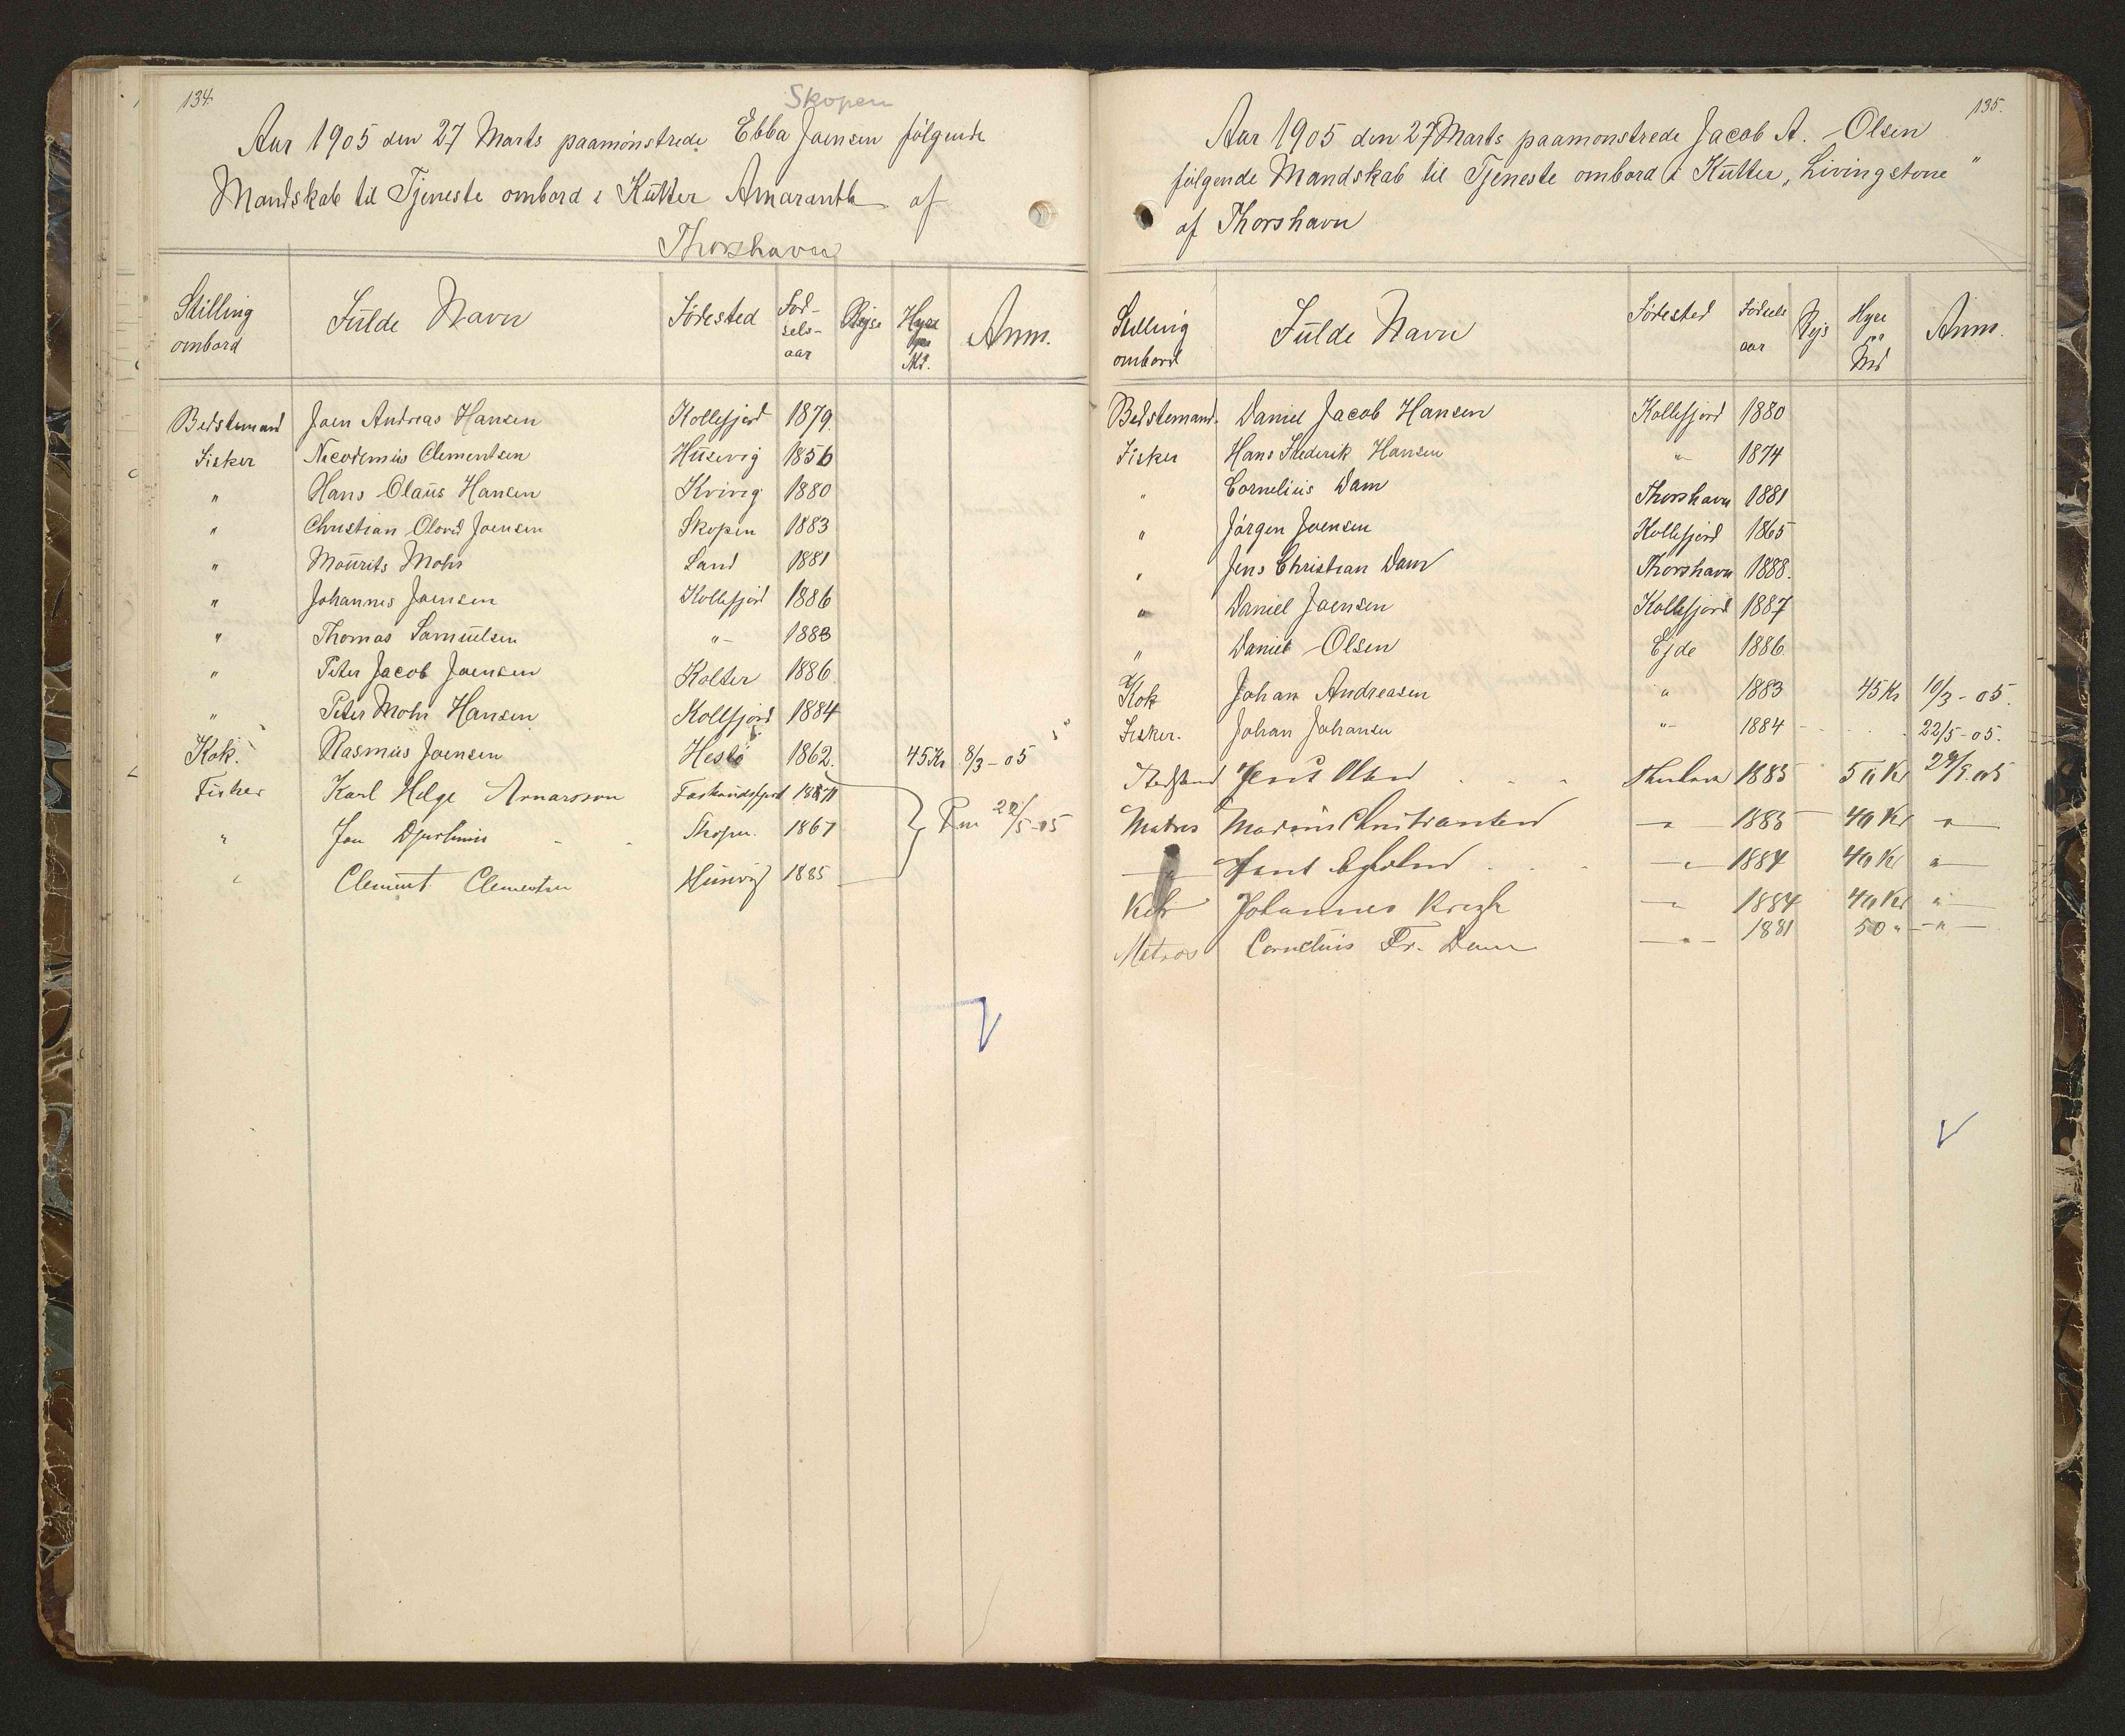 134.
Skopen
Aar 1905 den 27 Marts paamönstrede Ebba Joensen følgende
Mandskab til Tjeneste ombord i Kutter Amaranth af
Thorshavn
Stilling ombord Fulde Navn Födested Födselsaar Rejse Hyre pr Md. Anm.
Bedstemand Joen Andreas Hansen Kollefjord 1879.
Fisker Nicodemus Clementsen Husevig 1856
" Hans Olaus Hansen Kvivig 1880
" Christian Olavd Joensen Skopen 1883
" Mourits Mohr Sand 1881
" Johannes Joensen Kollefjord 1886
" Thomas Samuelsen "- 1883
" Peter Jacob Joensen Kolter 1886
" Peter Mohr Hansen Kollfjord 1884
Kok. Rasmus Joensen Hestö 1862. 45 Kr 8/3-05
Fisker Karl Helge Arnarsson
" Jon 1867 22/5-05
" Clement Clementsen Husevig 1885
135.
Aar 1905 den 27 Marts paamonstrede Jacob A. Olsen
følgende Mandskab til Tjeneste ombord i Kutter, Livingstone"
af Thorshavn
Stilling ombord Fulde Navn Födested Födsels aar Rejs Hyre pr Md Anm.
Bedstemand. Daniel Jacob Hansen Kollefjord 1880
Fisker Hans Frederik Hansen "- 1874
" Cornelius Dam Thorshavn 1881
" Jörgen Joensen Kollefjord 1865
" Jens Christian Dam Thorshavn 1888.
" Daniel Joensen Kollefjord 1887
" Daniel Olsen Ejde 1886
Kok Johan Andreasen " 1883 45 Kr 10/3-05.
Fisker. Johan Johansen "- 1884 22/5-05.
Jens Olsen 1885 50 Kr
Matros Marius Christiansen -"- 1885 40 Kr -"-
-"- -"- 1884 40 Kr -"-
Johannes -"- 1884 40 Kr -"-
Matros Cornelius Fr. Dam -"- 1881 50 " -"-